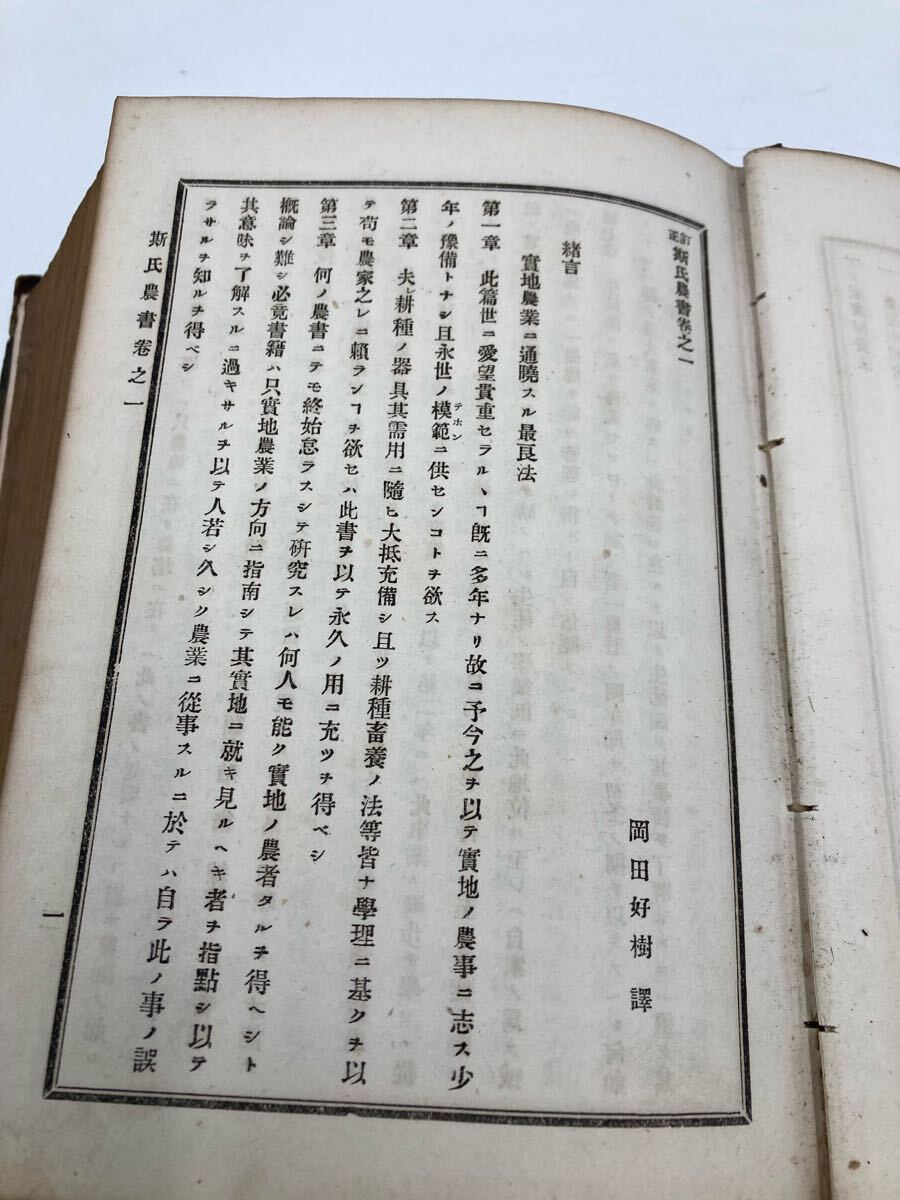 訂正斯氏農書卷之一
岡田好樹譯
緒言
實地農業ニ通曉スル最良法
第一章 此篇世ニ愛望貫重セラルヽヿ既ニ多年ナリ故ニ予今之ヲ以テ實地ノ農事ニ志ス少
年ノ豫備トナシ且永世ノ模範ニ供センコトヲ欲ス
テホン
第二章 夫レ耕種ノ器具其需用ニ隨ヒ大抵充備シ且ツ耕種畜養ノ法等皆ナ學理ニ基クヲ以
テ苟モ農家之レニ賴ランヿヲ欲セハ此書ヲ以テ永久ノ用ニ充ツヲ得ベシ
第三章 何ノ農書ニテモ終始怠ラスシテ研究スレハ何人モ能ク實地ノ農者タルヲ得ヘシト
概論シ難シ必竟書籍ハ只實地農業ノ方向ニ指南シテ其實地ニ就キ見ルヘキ者ヲ指點シ以テ
其意味ヲ了解スルニ過キサルヲ以テ人若シ久シク農業ニ從事スルニ於テハ自ラ此ノ事ノ誤
ラサルヲ知ルヲ得ベシ
斯氏農書卷之一
一